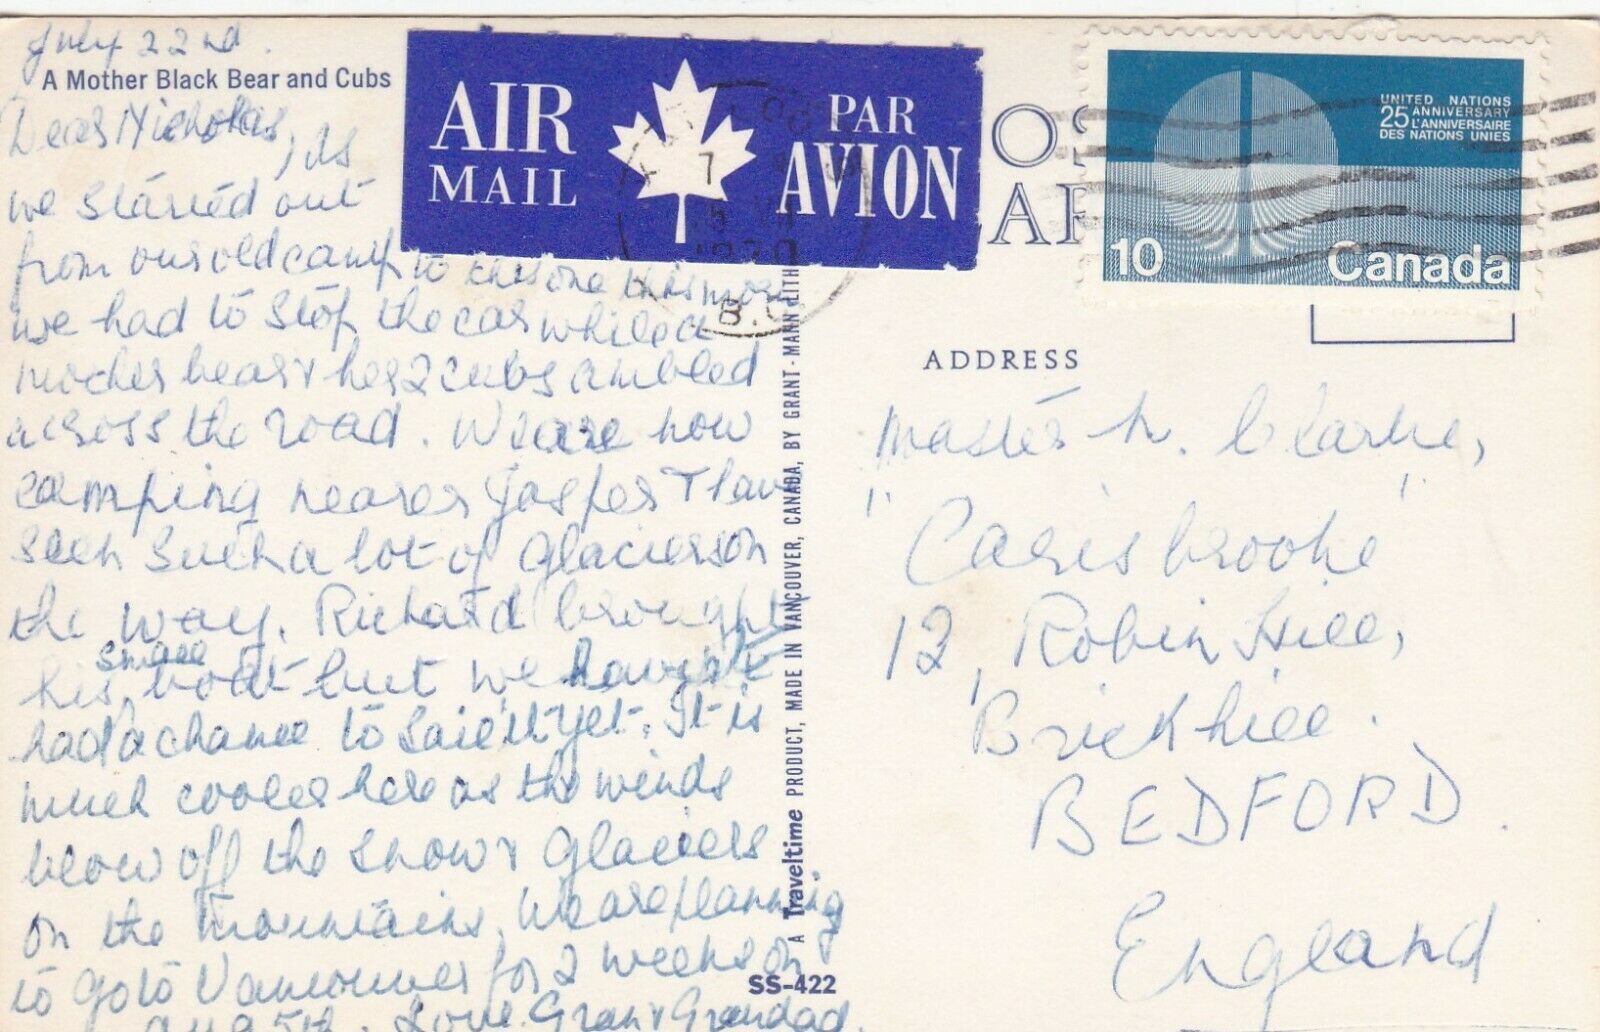 July 22nd.
A Mother Black Bear and Cubs
Dear Nicholas, As
we started out
from our old camp to this one this morn
we had to stop the car while a
mother bear & her 2 cubs ambled
across the road. We are now
camping near Jasper & have
seen such a lot of glaciers on
the way. Richard brought
his small boat but we haven't
had a chance to sail it yet. It is
much cooler here as the winds
blow off the snow & glaciers
on the mountains. We are planning
to go to Vancouver for 2 weeks on
Aug 5th. Love Gran & Grandad.
AIR MAIL
PAR AVION
1970
B.C
UNITED NATIONS
25 ANNIVERSARY
L'ANNIVERSAIRE
DES NATIONS UNIES
10 Canada
A Traveltime PRODUCT, MADE IN VANCOUVER, CANADA, BY GRANT-MANN LITH
SS-422
ADDRESS
Master N. Clarke,
"Carisbrooke"
12, Robin Hill,
Brickhill.
BEDFORD.
England